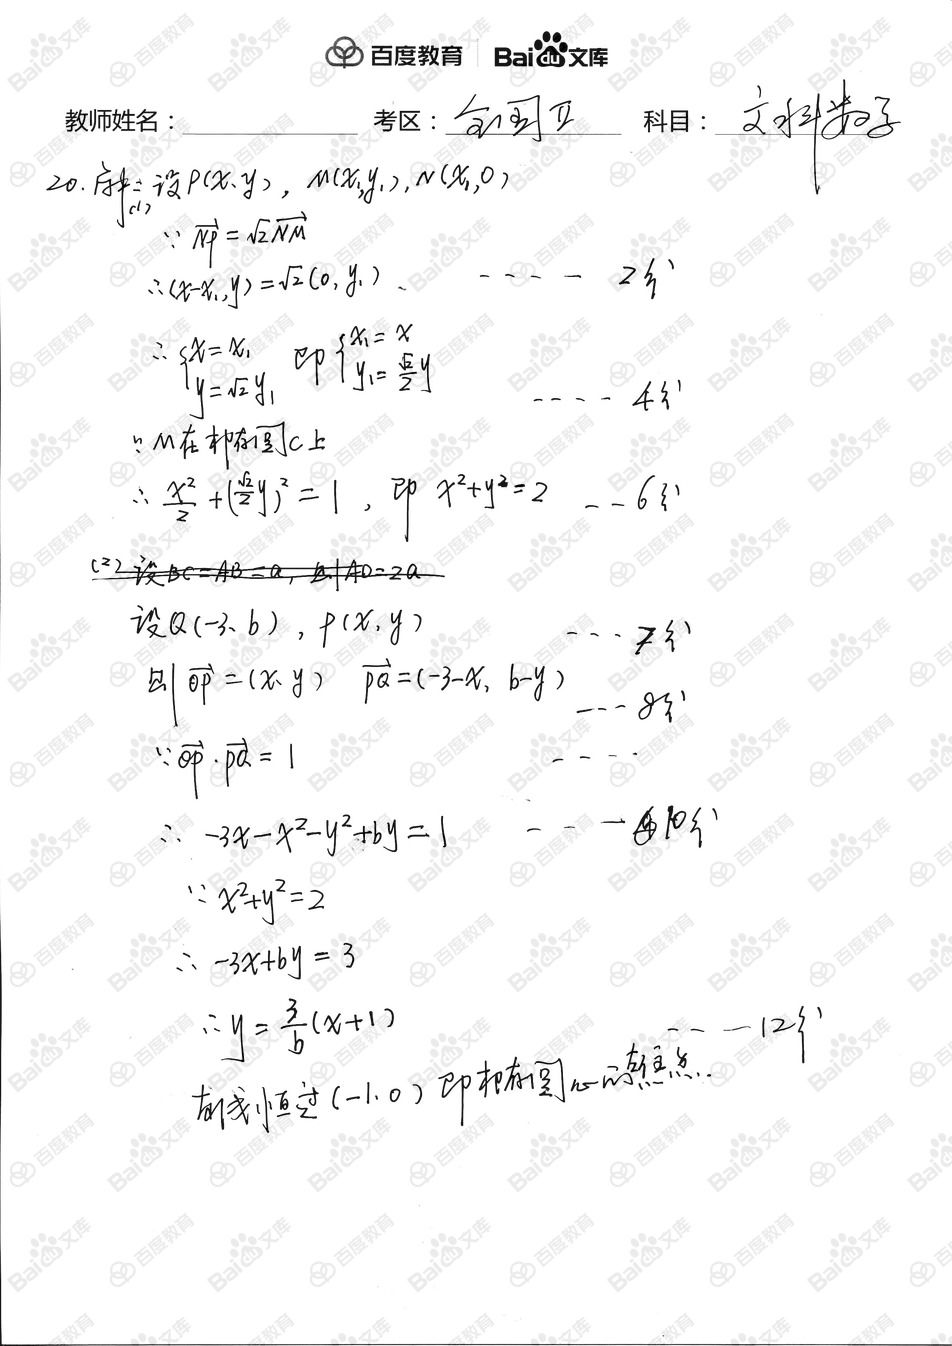 百度教育 Baidu文库
教师姓名： 考区：全国Ⅱ 科目：文科数学
20. 解：(1) 设P(x、y)，M(x₁,y₁), N(x₁,0)
∵ NP = √2 NM
∴ (x-x₁, y) = √2(0, y₁) ---- 2分
∴ {x=x₁ 即 {x₁=x
y=√2y₁ y₁=√2/2 y ---- 4分
∵ M在椭圆C上
∴ x²/2 + (√2/2 y)² = 1，即 x²+y²=2 -- 6分
(2) 设BC=AB=a，则AD=2a
设Q(-3、b)，P(x、y) --- 7分
则 OP=(x、y) PQ=(-3-x, b-y) --- 8分
∵ OP·PQ=1 ----
∴ -3x-x²-y²+by=1 --- 10分
∵ x²+y²=2
∴ -3x+by=3
∴ y=3/b(x+1) --- 12分
直线恒过(-1、0) 即椭圆的焦点.